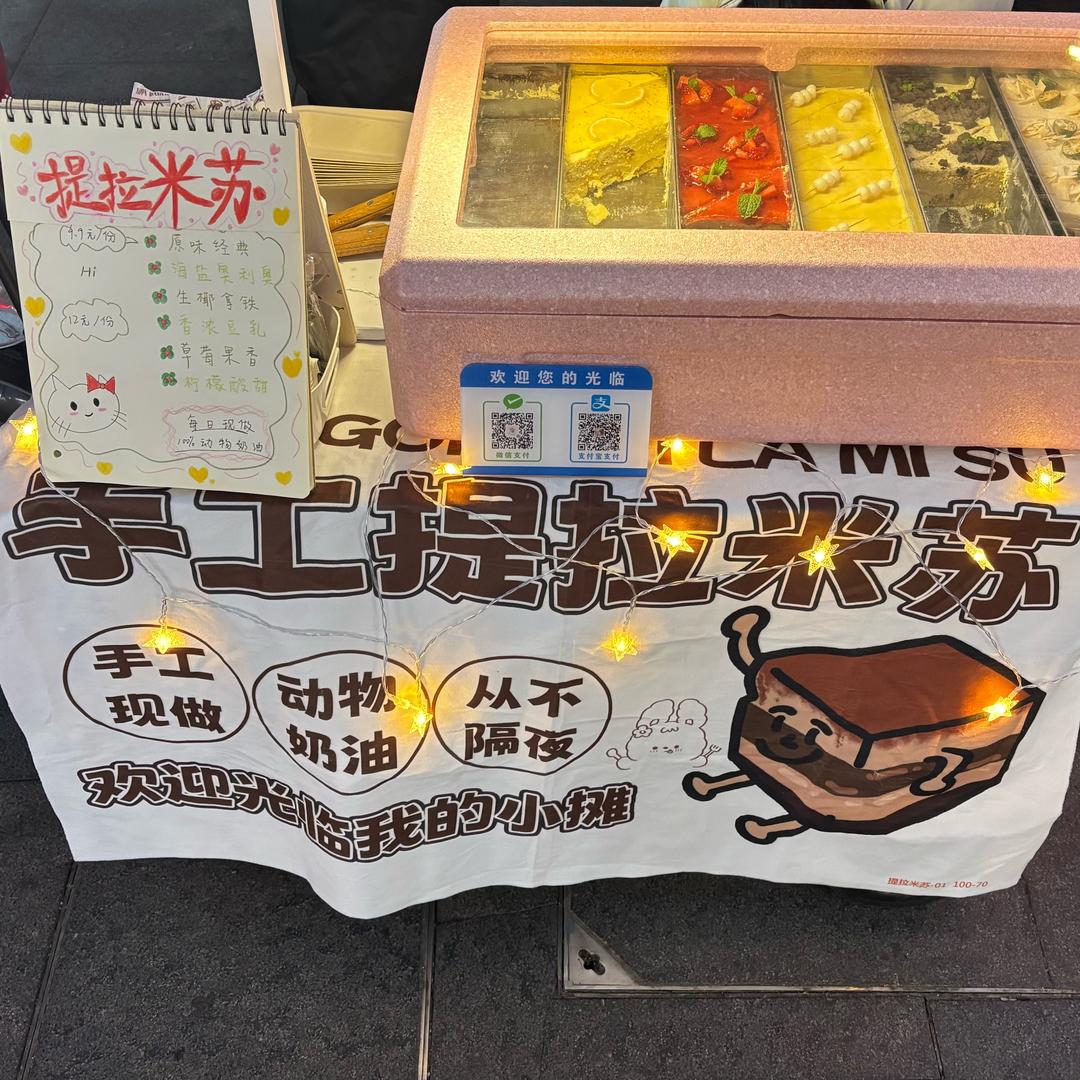 提拉米苏
9.9元/份
Hi
12元/份
原味经典
海盐奥利奥
生椰拿铁
香浓豆乳
草莓果香
柠檬酸甜
每日现做
100%动物奶油
欢迎您的光临
微信支付
支付宝支付
LA MI SU
手工提拉米苏
手工
现做
动物
奶油
从不
隔夜
欢迎光临我的小摊
提拉米苏-01 100-70